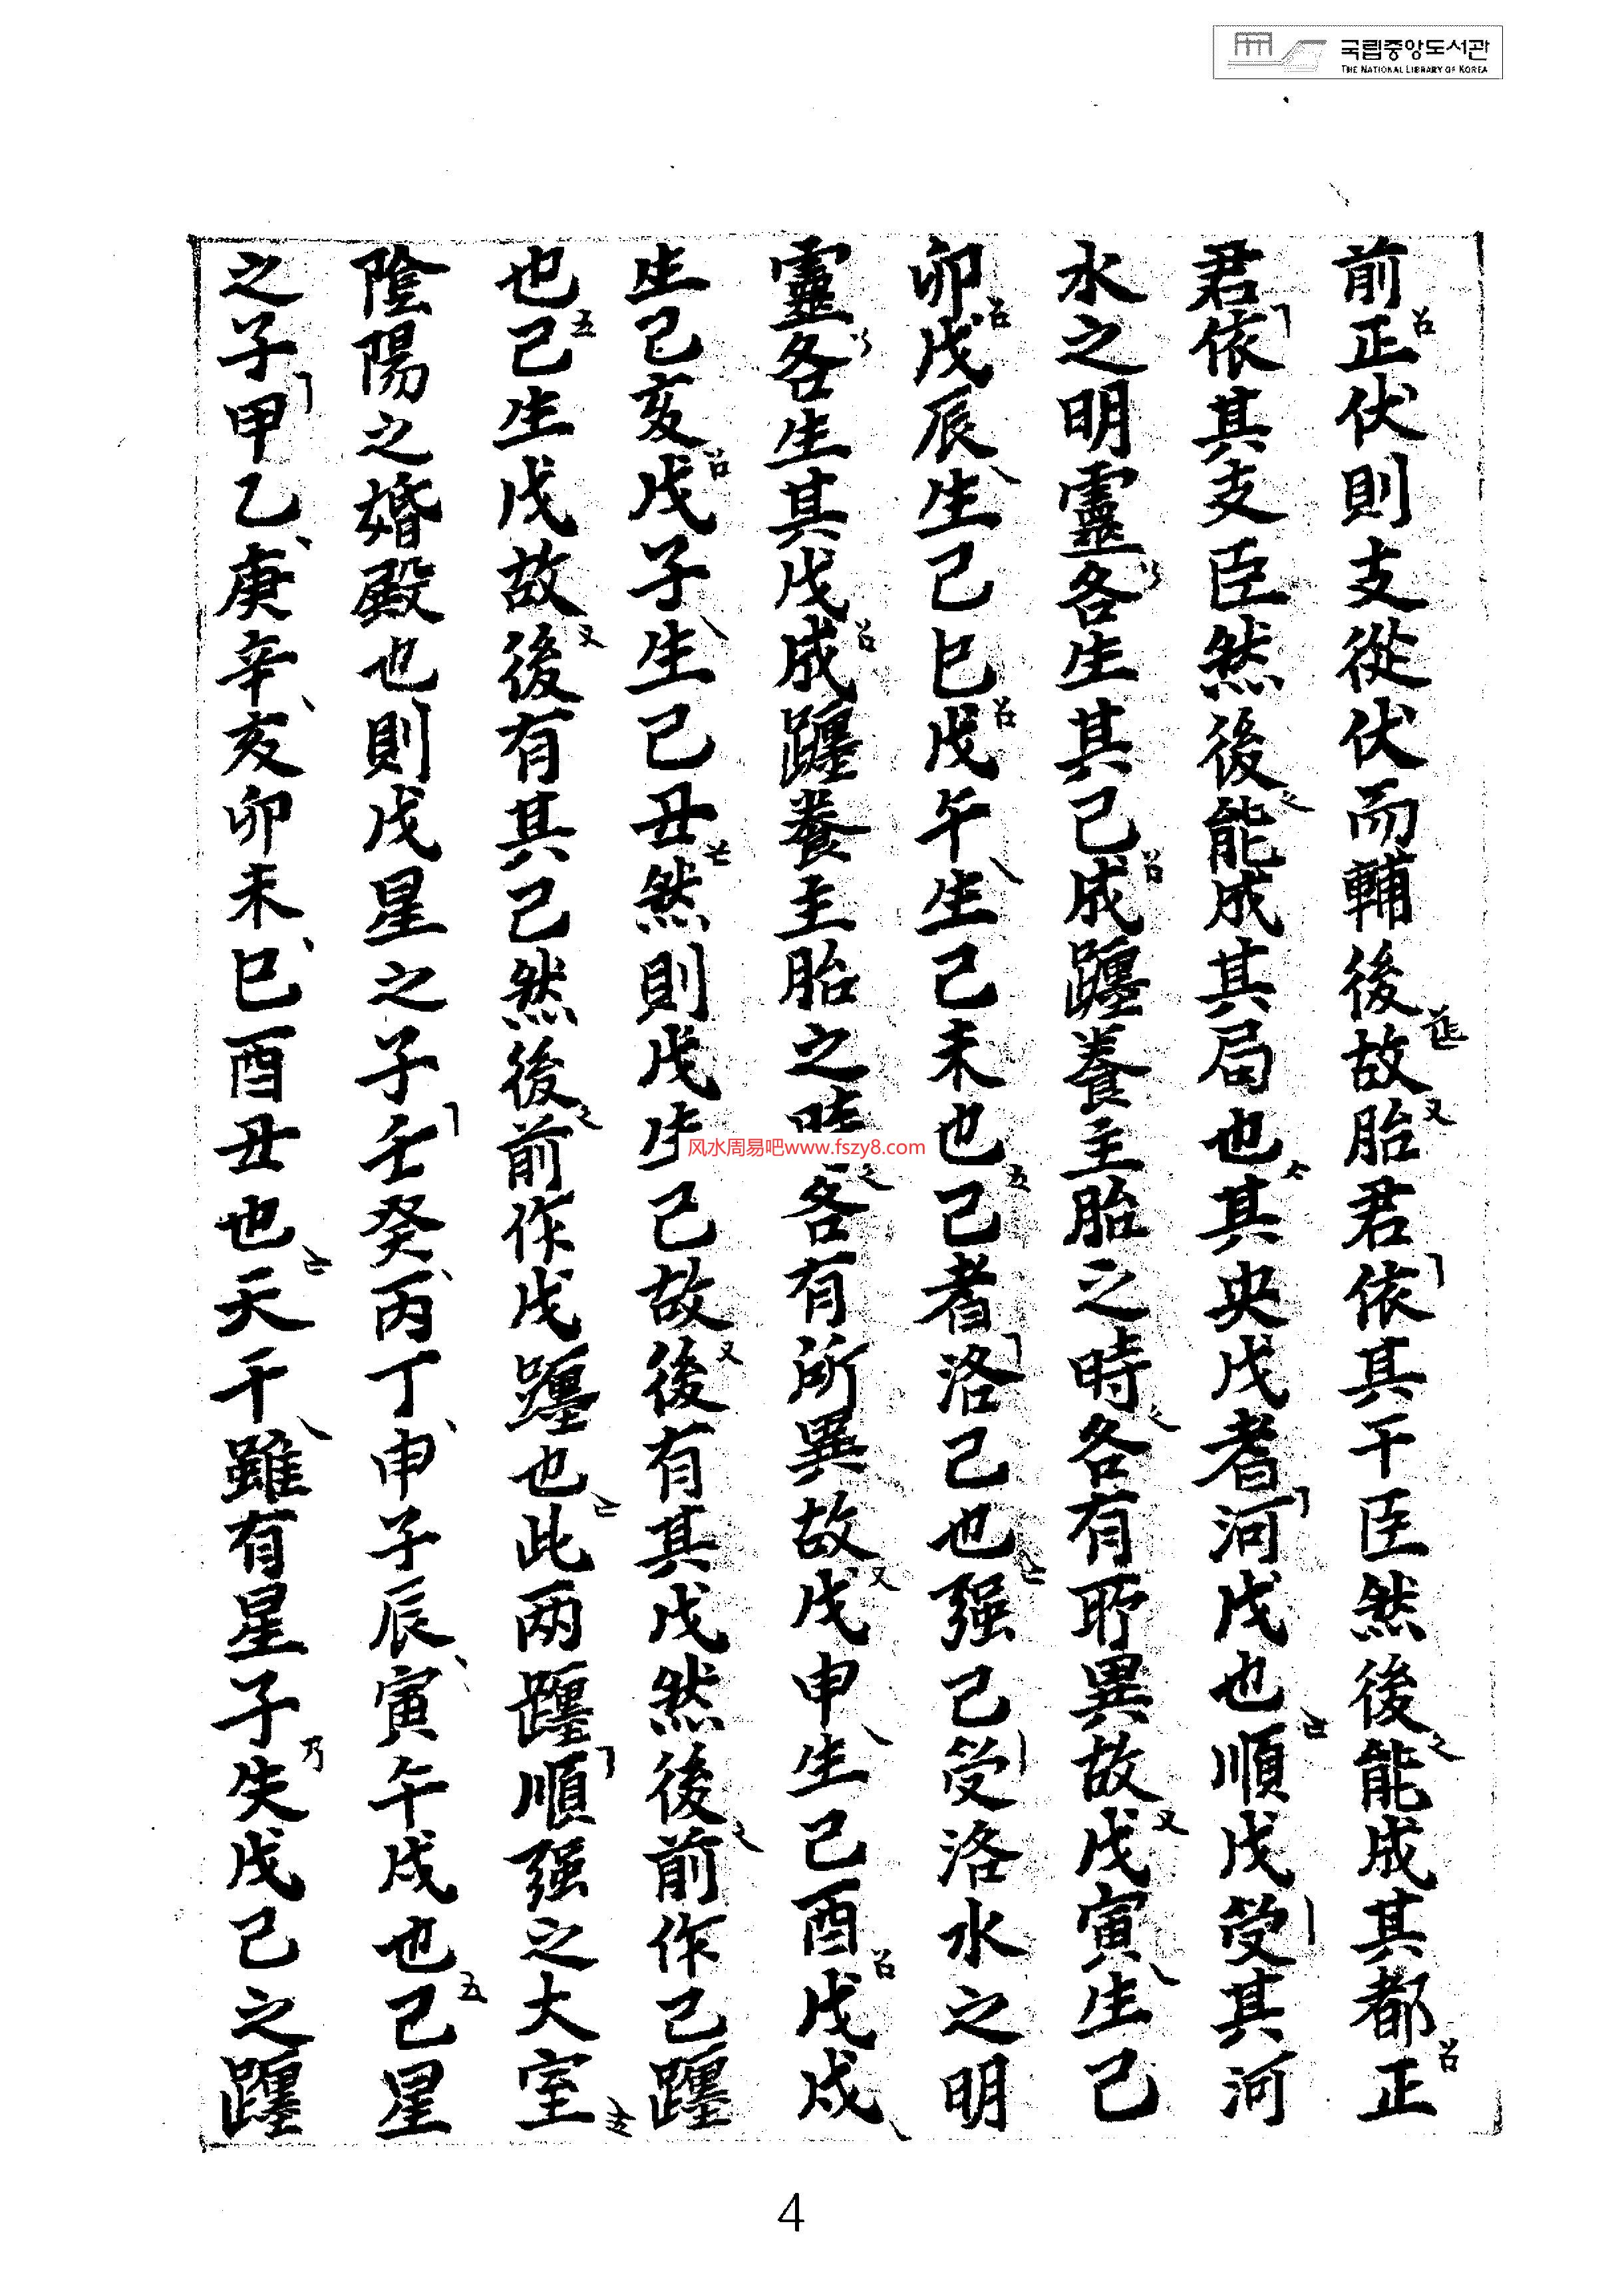 국립중앙도서관
THE NATIONAL LIBRARY OF KOREA
前正伏則支從伏而輔後故胎君依其干臣然後能成其都正
君依其支臣然後能成其局也其央戊者河戊也順戊受其河
水之明靈各生其己成躔養主胎之時各有所異故戊寅生己
卯戊辰生己巳戊午生己未也己者洛己也强己受洛水之明
靈各生其戊成躔養主胎之時各有所異故戊申生己酉戊戌
生己亥戊子生己丑然則戊生己故後有其戊然後前作己躔
也己生戊故後有其己然後前作戊躔也此两躔順强之大室
陰陽之婚殿也則戊星之子壬癸丙丁申子辰寅午戌也己星
之子甲乙庚辛亥卯未巳酉丑也天干雖有星子失戊己之躔
风水周易吧www.fszy8.com
4